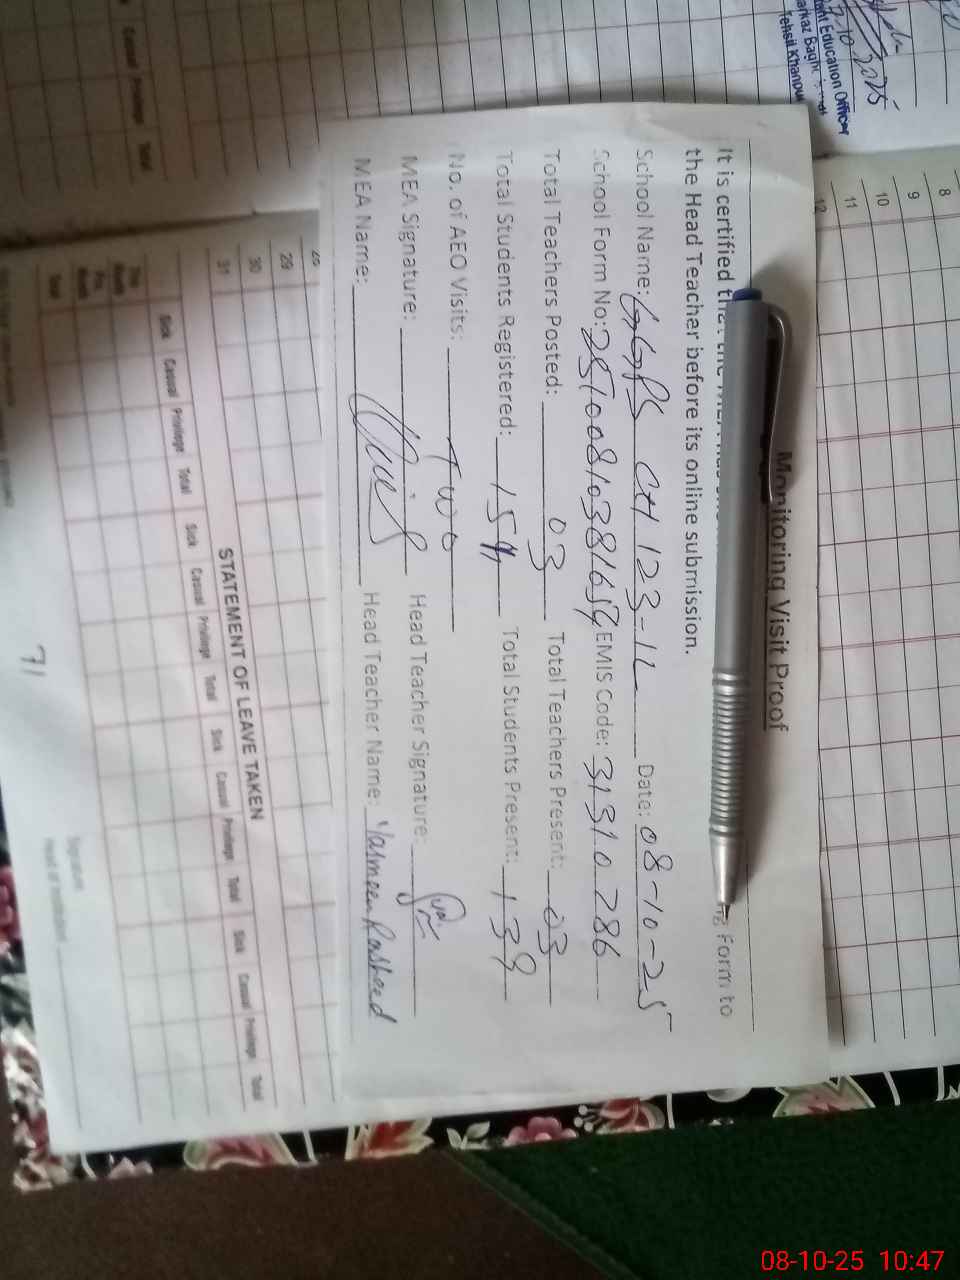 Monitoring Visit Proof
It is certified that the MEA has Form to
the Head Teacher before its online submission.
School Name: GGPS CH 123-1L Date: 08-10-25
School Form No: EMIS Code: 31310286
Total Teachers Posted: 03 Total Teachers Present: 03
Total Students Registered: 154 Total Students Present: 139
No. of AEO Visits: Two
MEA Signature: Head Teacher Signature:
MEA Name: Head Teacher Name: Yasmeen Rasheed
Education Officer
Markaz Bagh
Tehsil
8
9
10
11
12
29
30
31
STATEMENT OF LEAVE TAKEN
Sick Casual Privilege Total Sick Casual Privilege Total Sick Casual Privilege Total Sick Casual Privilege Total
Total
71
Casual Privilege Total
08-10-25 10:47